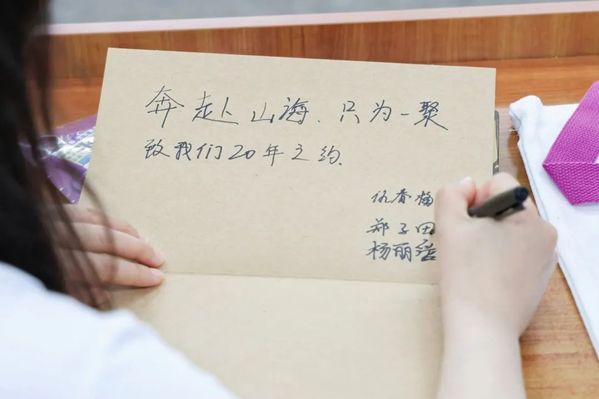 奔赴山海,只为一聚
致我们20年之约.
伍春梅
郑子田
杨丽